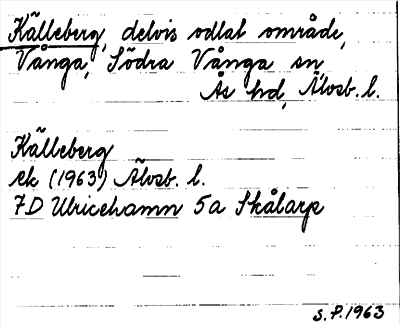 Källeberg, delvis odlat område,
Vånga, Södra Vånga sn
Ås hd, Älvsb. l.
Källeberg
ek (1963) Älvsb. l.
7D Ulricehamn 5a Skålarp
S.P. 1963